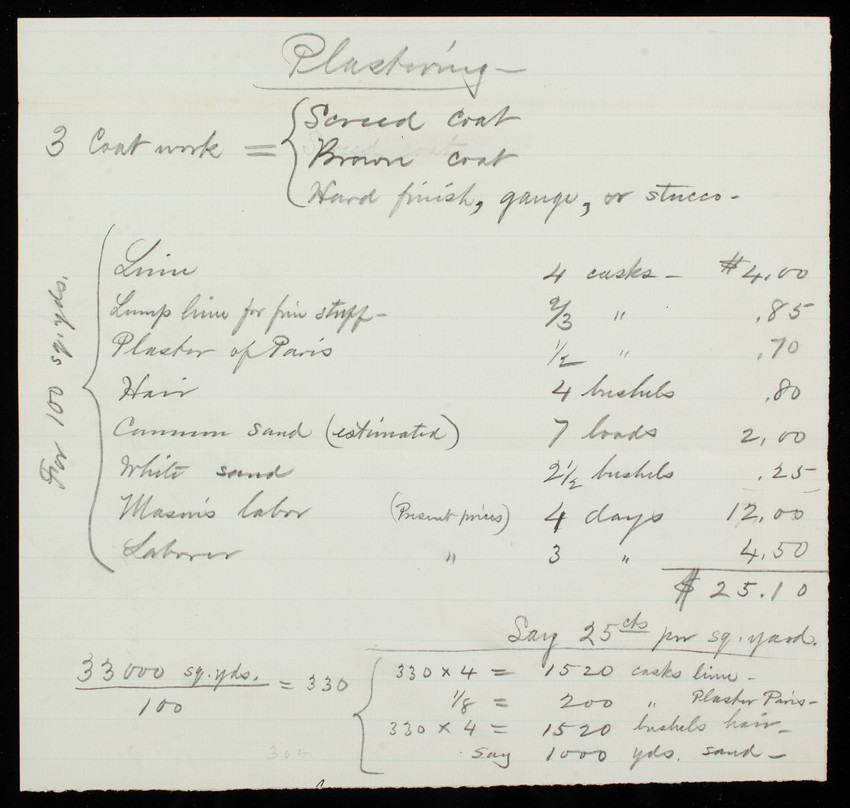 Plastering —
3 Coat work = { Screed coat
Brown coat
Hard finish, gauge, or stucco -
For 100 sq. yds.
Lime 4 casks - $4.00
Lump lime for fine stuff - 2/3 " .85
Plaster of Paris 1/2 " .70
Hair 4 bushels .80
Common sand (estimated) 7 loads 2.00
White sand 2 1/2 bushels .25
Mason's labor (Present prices) 4 days 12.00
Laborer " 3 " 4.50
$25.10
Say 25 cts per sq. yard.
33000 sq. yds. / 100 = 330 { 330 x 4 = 1520 casks lime -
1/8 = 200 " Plaster Paris -
330 x 4 = 1520 bushels hair -
say 1000 yds. sand -